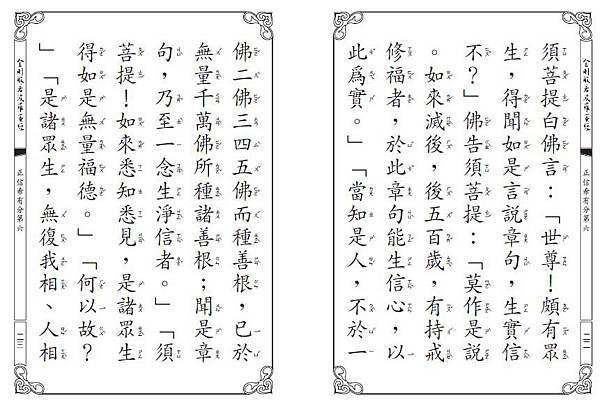 金剛般若波羅蜜經
正信希有分第六
二二
須菩提白佛言：「世尊！頗有眾
生，得聞如是言說章句，生實信
不？」佛告須菩提：「莫作是說
。如來滅後，後五百歲，有持戒
修福者，於此章句能生信心，以
此爲實。」「當知是人，不於一
佛二佛三四五佛而種善根，已於
無量千萬佛所種諸善根；聞是章
句，乃至一念生淨信者。」「須
菩提！如來悉知悉見，是諸眾生
得如是無量福德。」「何以故？
」「是諸眾生，無復我相、人相
金剛般若波羅蜜經
正信希有分第六
二三